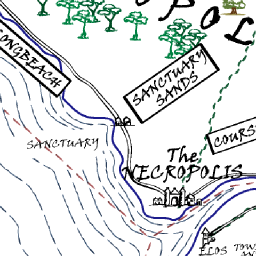 POL
LONGBEACH
SANCTUARY
SANDS
SANCTUARY
COURS
The
NECROPOLIS
ELOS TOW
AN